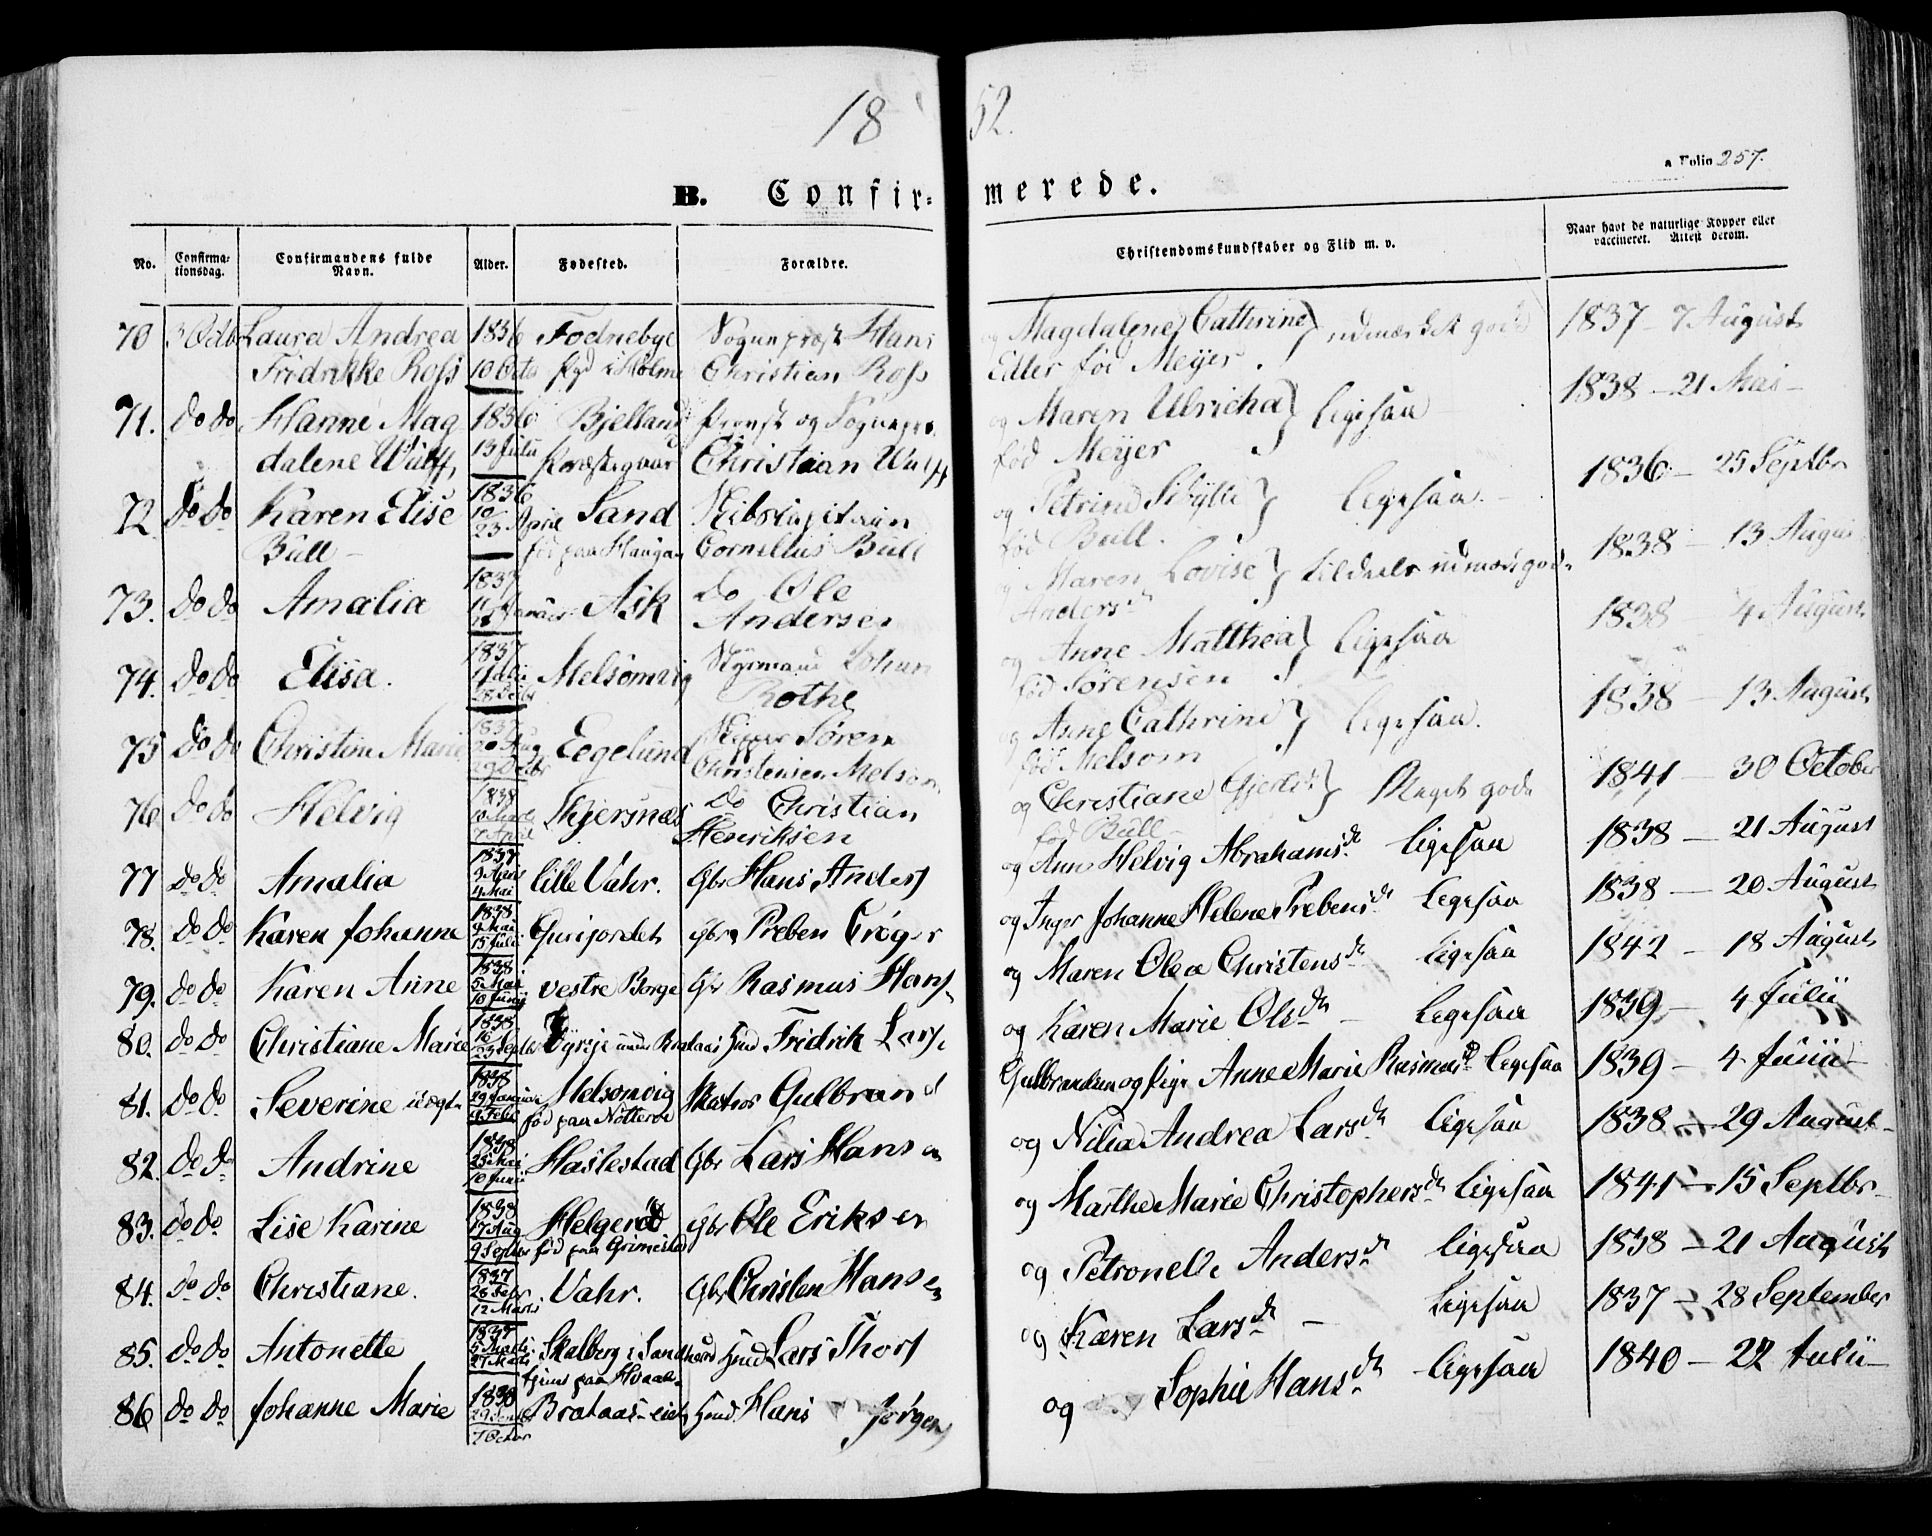 1852.
a Folio 257.
B. Confirmerede.
No. Confirmationsdag. Confirmandens fulde Navn. Alder. Fødested. Forældre. Christendomskundskaber og Flid m. v. Naar havt de naturlige Kopper eller vaccineret. Attest derom.
70 3 Octb Laura Andrea 1836 Fodnebye Sognepræst Hans og Magdalene Cathrine udmærket godt 1837 - 7 August
Fridrikke Ross 10 Octb fød i Holme Christian Ross Edler fød Meyer.
71. do do Hanne Mag 1836 Bjelland Provst og Sognepr. og Maren Ulricha ligesaa 1838 - 21 Mai
dalene Wulff 13 Julii Præstegaar Christian Wulff fød Meyer
72 do do Karen Elise 1836 Sand Skibscapitain og Petrine Sibylle ligesaa 1836 - 25 Septbr
Bull 10 23 April fød paa Haugan Cornelius Bull fød Bull.
73. do do Amalia 1837 Ask do Ole og Maren Lovise tildeels udmærk god 1838 - 13 Augus
Andersen Andersd.
74. do do Elisa. 1837 Melsomvig Styrmand Johan og Anne Matthea ligesaa 1838 - 4 August
Rothe fød Sørensen
75 do do Christine Marie 1837 Eegelund Skipper Søren og Anne Cathrine ligesaa. 1838 - 13 August
20 Aug Christensen Melsom fød Melsom
76 do do Helvig 1838 Skjersnæs do Christian og Christiane Gjertr. Meget godt 1841 - 30 October
7 April Henriksen fød Bull
77 do do Amalia 1837 lille Vahr. Gbr Hans Anders og Anne Helvig Abrahamsd. ligesaa 1838 - 21 August
4 Mai
78. do do Karen Johanne 1838 Gurijordet Gbr Preben Crøger og Inger Johanne Helene Prebensd. ligesaa 1838 - 20 August
9 Mai 15 Juli
79. do do Karen Anne 1838 vestre Borge Gbr Rasmus Hans og Maren Olea Christensd. ligesaa 1842 - 18 August
5 Mai 10 Junij
80. do do Christiane Marie 1838 Hmd Fridrik Lars. og Karen Marie Olsd. - ligesaa 1839 - 4 Julii
23 Septbr
81. do do Severine uægte 1838 Melsomvig Matros Gulbrand Gulbrandsen og Pige Anne Marie Rasmusd. ligesaa 1839 - 4 Junii
29 Januar fød paa Nøtterøe
82. do do Andrine 1838 Haslestad Gbr Lars Hansen og Nilia Andrea Larsd. ligesaa 1838 - 29 August
25 Mai 10 Junii
83. do do Lise Karine 1838 Helgerød Gbr Ole Eriksen og Marthe Marie Christophersd. ligesaa 1841 - 15 Septbr
17 Aug 9 Septbr fød paa Grimestad
84. do do Christiane. 1837 Vahr. Gbr Christen Hansen og Petronelle Andersd. ligesaa 1838 - 21 August
26 Febr 12 Marts
85. do do Antonette 1837 Skalberg i Sandherred Hmd Lars Thors og Karen Larsd. - ligesaa 1837 - 28 September
5 Marts 27 Marts hjem paa Hvaal
86 do do Johanne Marie 1838 Brataas-eiet Hmd. Hans Jørgens og Sophie Hansd. ligesaa 1840 - 22 Julii
7 Octbr